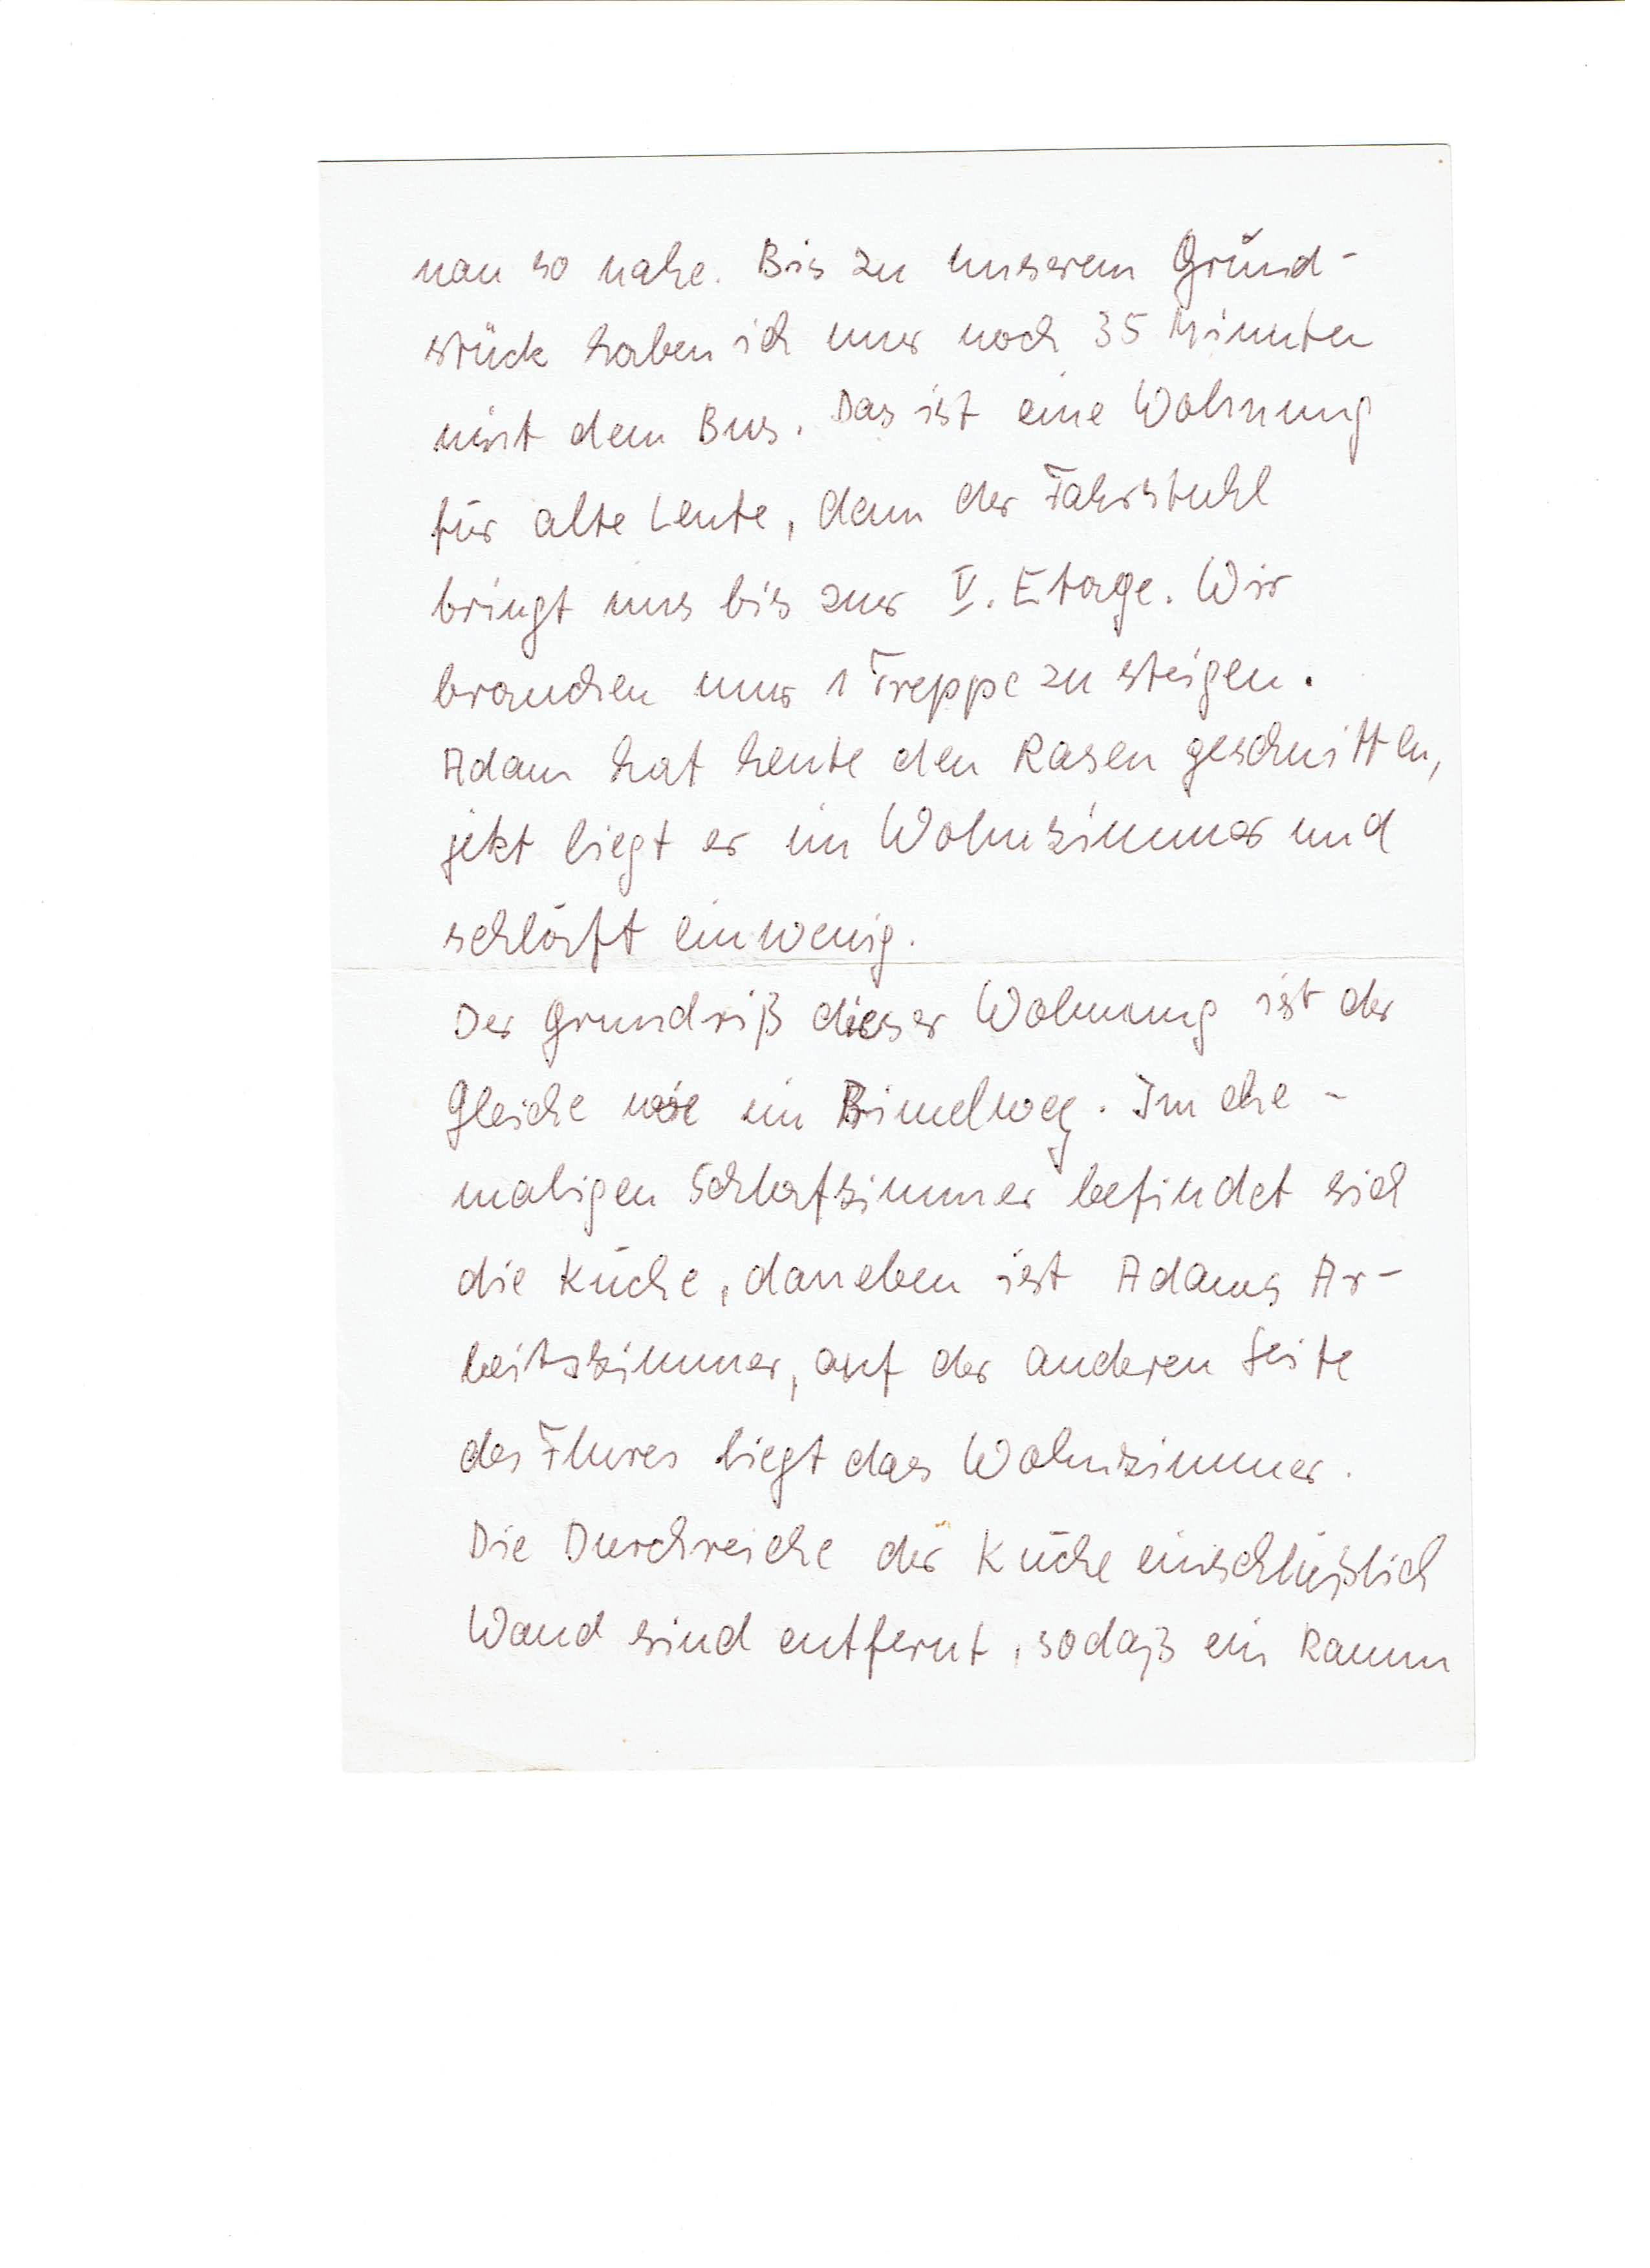 nau so nahe. Bis zu unserem Grund-
stück haben ich nur noch 35 Minuten
mit dem Bus. Das ist eine Wohnung
für alte Leute, denn der Fahrstuhl
bringt uns bis zur V. Etage. Wir
brauchen nur 1 Treppe zu steigen.
Adam hat heute den Rasen geschnitten,
jetzt liegt er im Wohnzimmer und
schläft ein wenig.
Der Grundriß dieser Wohnung ist der
Gleiche wie im Bimelweg. Im ehe-
maligen Schlafzimmer befindet sich
die Küche, daneben ist Adams Ar-
beitszimmer, auf der anderen Seite
des Flures liegt das Wohnzimmer.
Die Durchreiche der Küche einschließlich
Wand sind entfernt, sodaß ein Raum